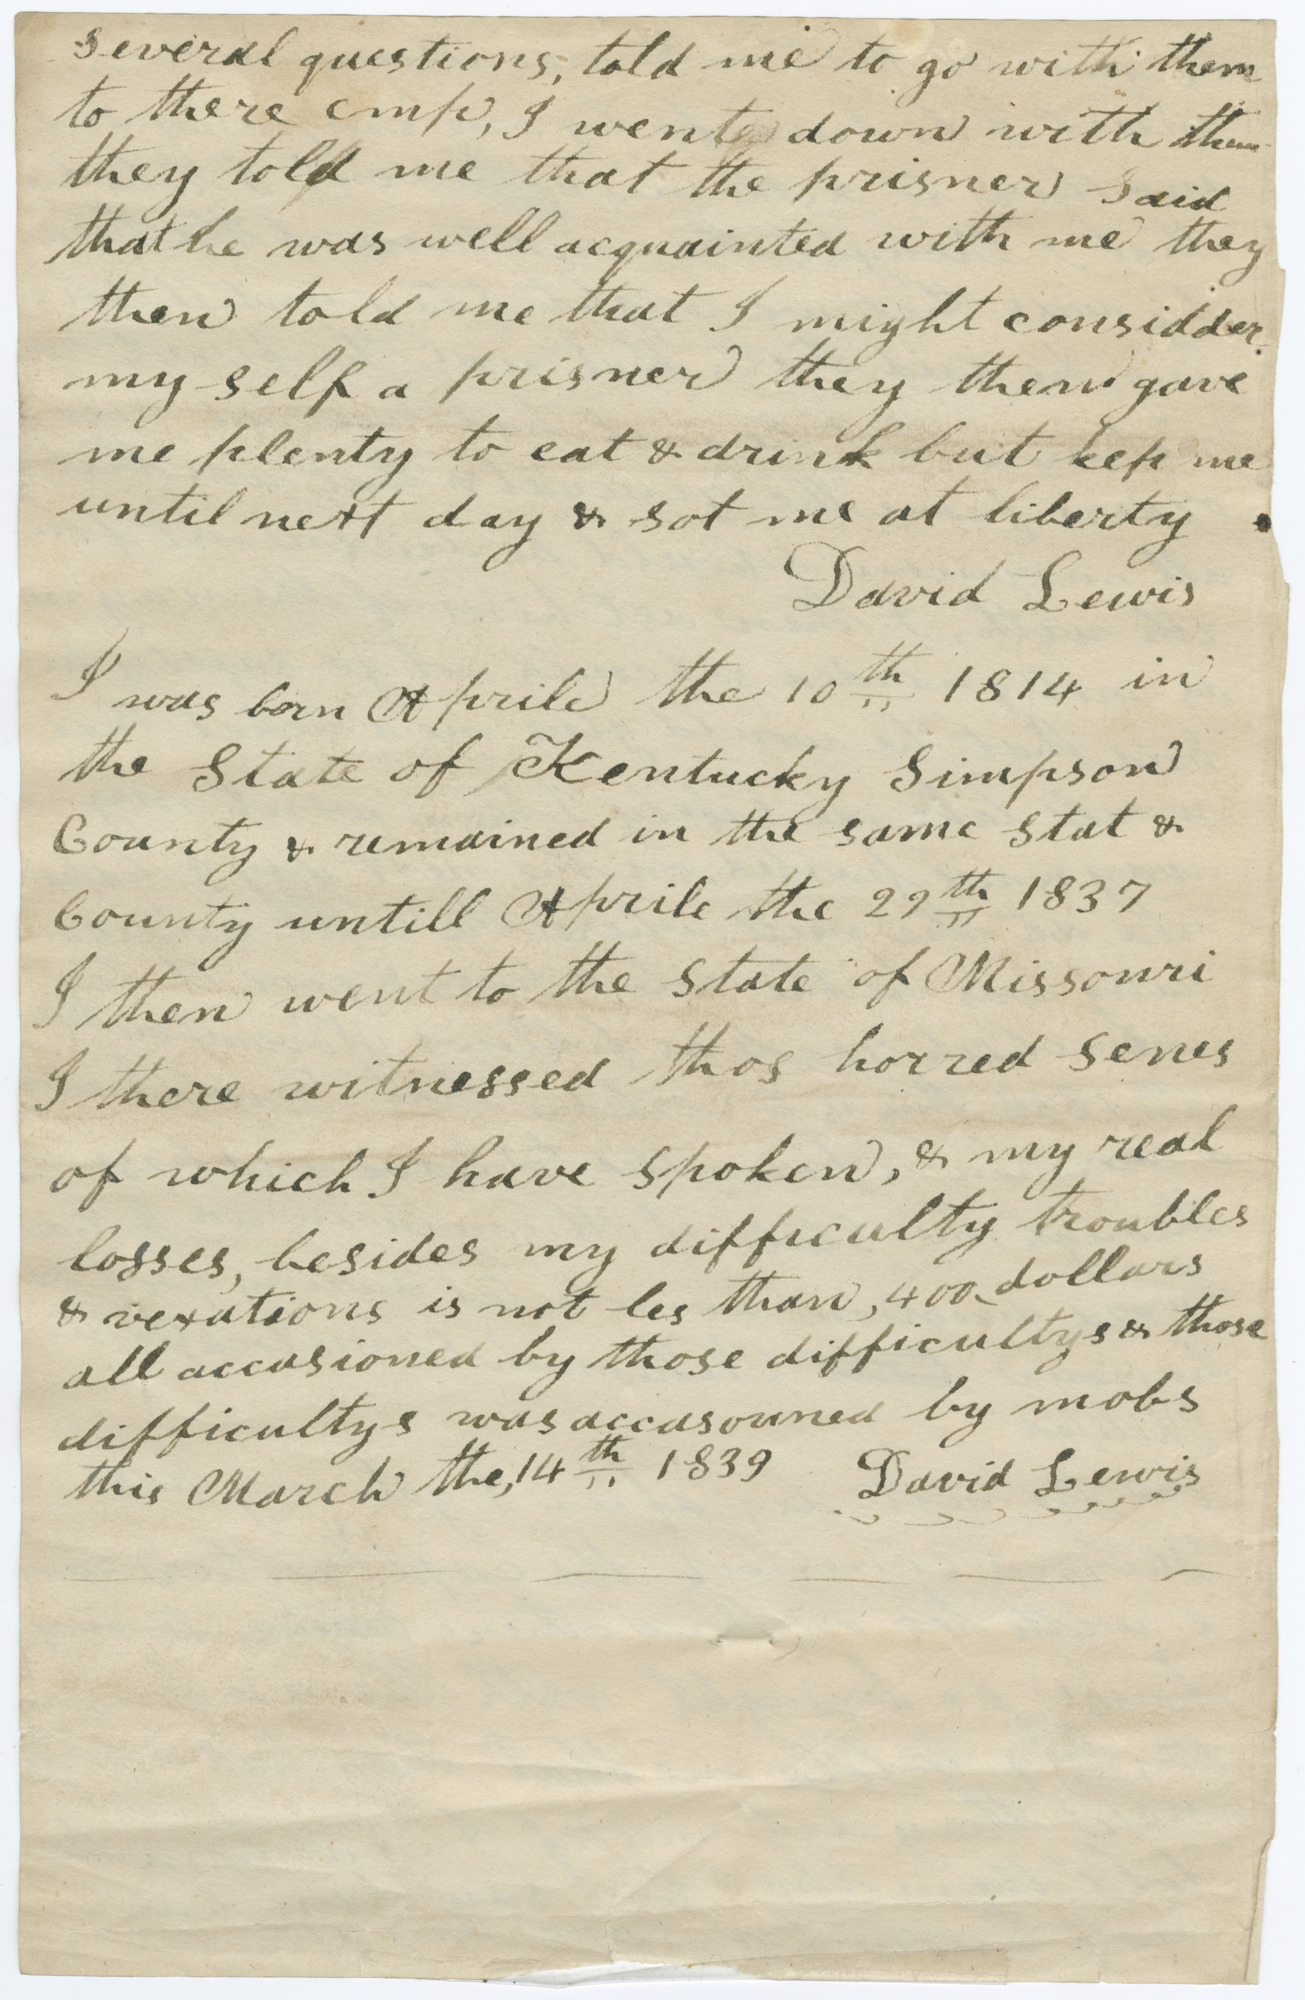 several questions, told me to go with them
to there cmp, I went down with them
they told me that the prisner said
that he was well acquainted with me they
then told me that I might considder
my self a prisner they then gave
me plenty to eat & drink but kep me
until next day & sot me at liberty
David Lewis
I was born Aprile the 10th 1814 in
the State of Kentucky Simpson
County & remained in the same stat &
County untill Aprile the 29th 1837
I then went to the State of Missouri
I there witnessed thos horred senes
of which I have spoken, & my real
losses, besides my difficulty troubles
& vexations is not les than, 400 dollars
all accasioned by those difficultys & those
difficultys was accasouned by mobs
this March the, 14th 1839 David Lewis